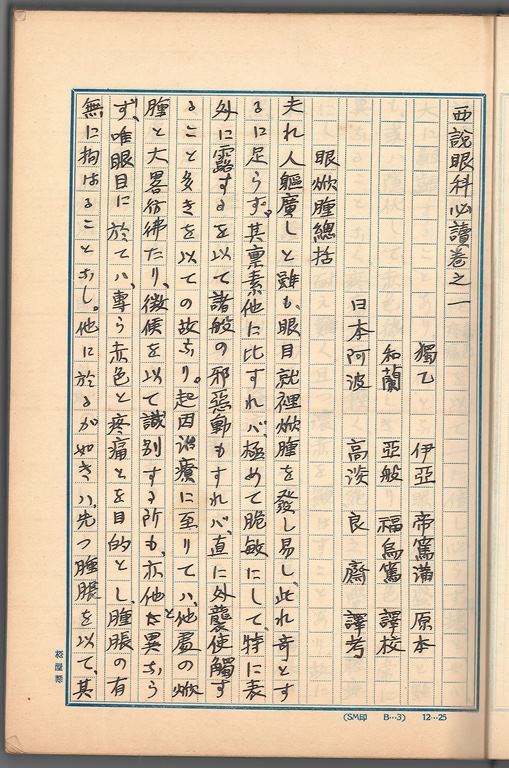 西說眼科必讀卷之一
獨乙 伊亞 帝篤滿 原本
和蘭 亞般 福烏篤 譯校
日本阿波 高淡 良齋 譯考
眼焮腫總括
夫れ人軀廣しと雖も、眼目就裡焮腫を發し易し、此れ奇とす
るに足らず。其稟素他に比すれバ、極めて脆敏にして、特に表
外に露するを以て諸般の邪惡動もすれバ、直に外襲使觸す
ること多きを以ての故なり。起因治療に至りてハ、他畠の焮
腫と大畧彷彿たり、徴候を以て識別する所も、亦他と異なら
ず、唯眼目に於てハ、專ら赤色と疼痛とを目的とし、腫脹の有
無に拘はることなし。他に於るが如きハ、先つ腫脹を以て、其
(SM印 B…3) 12…25